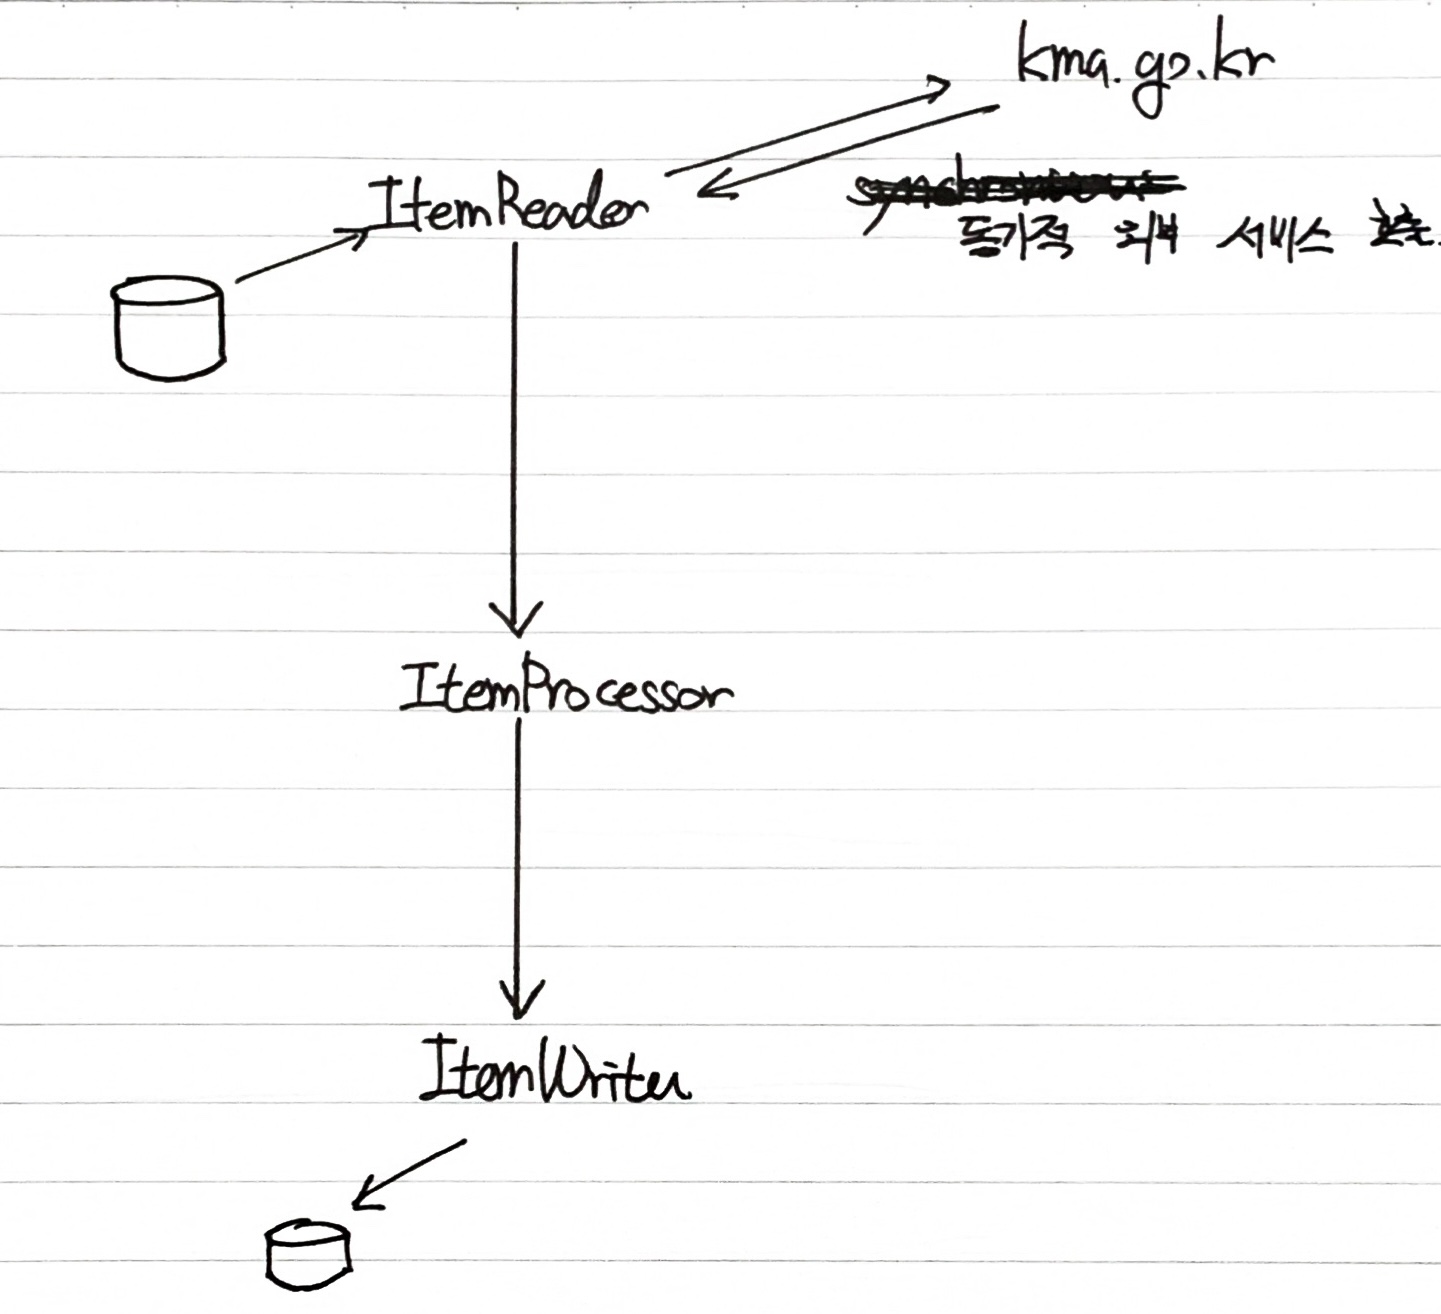 kma.go.kr
ItemReader
동기적 외부 서비스 호출.
ItemProcessor
ItemWriter